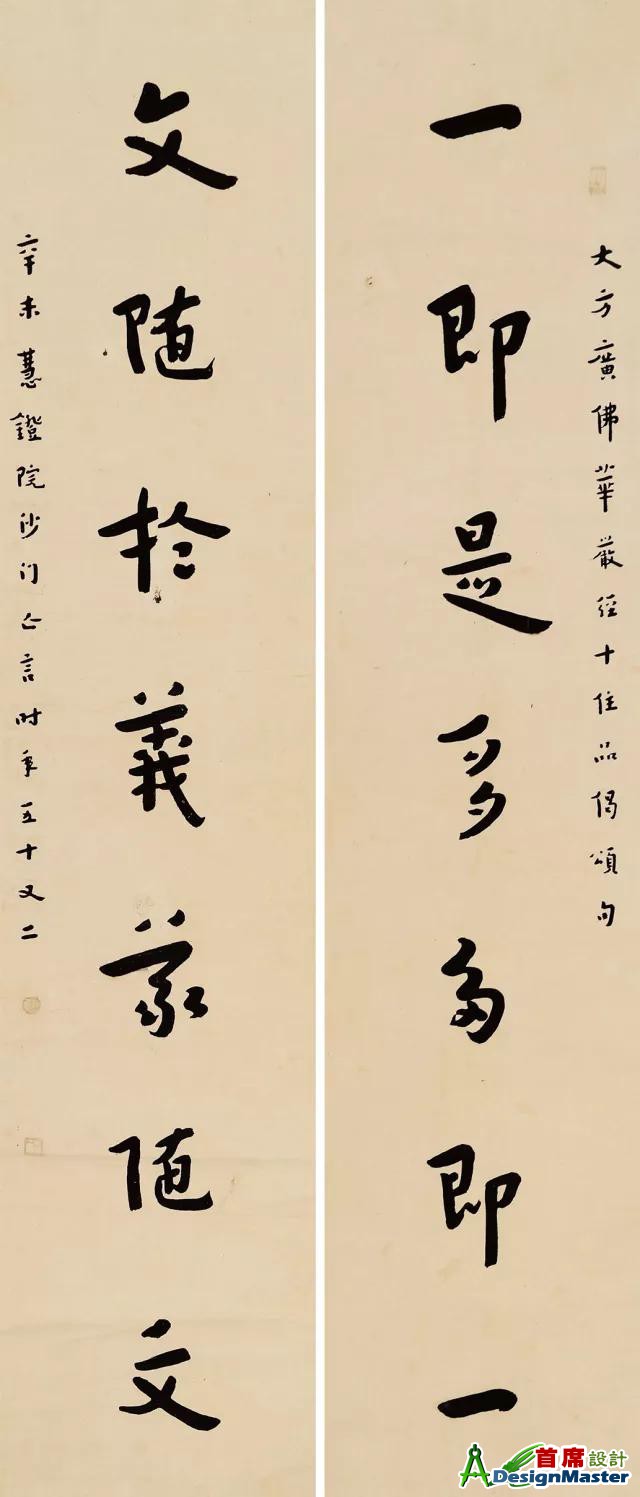 大方廣佛華嚴經十住品偈頌句
一即是多多即一
文随於義義随文
辛未慧鐙院沙门亡言时年五十又二
首席設計
DesignMaster